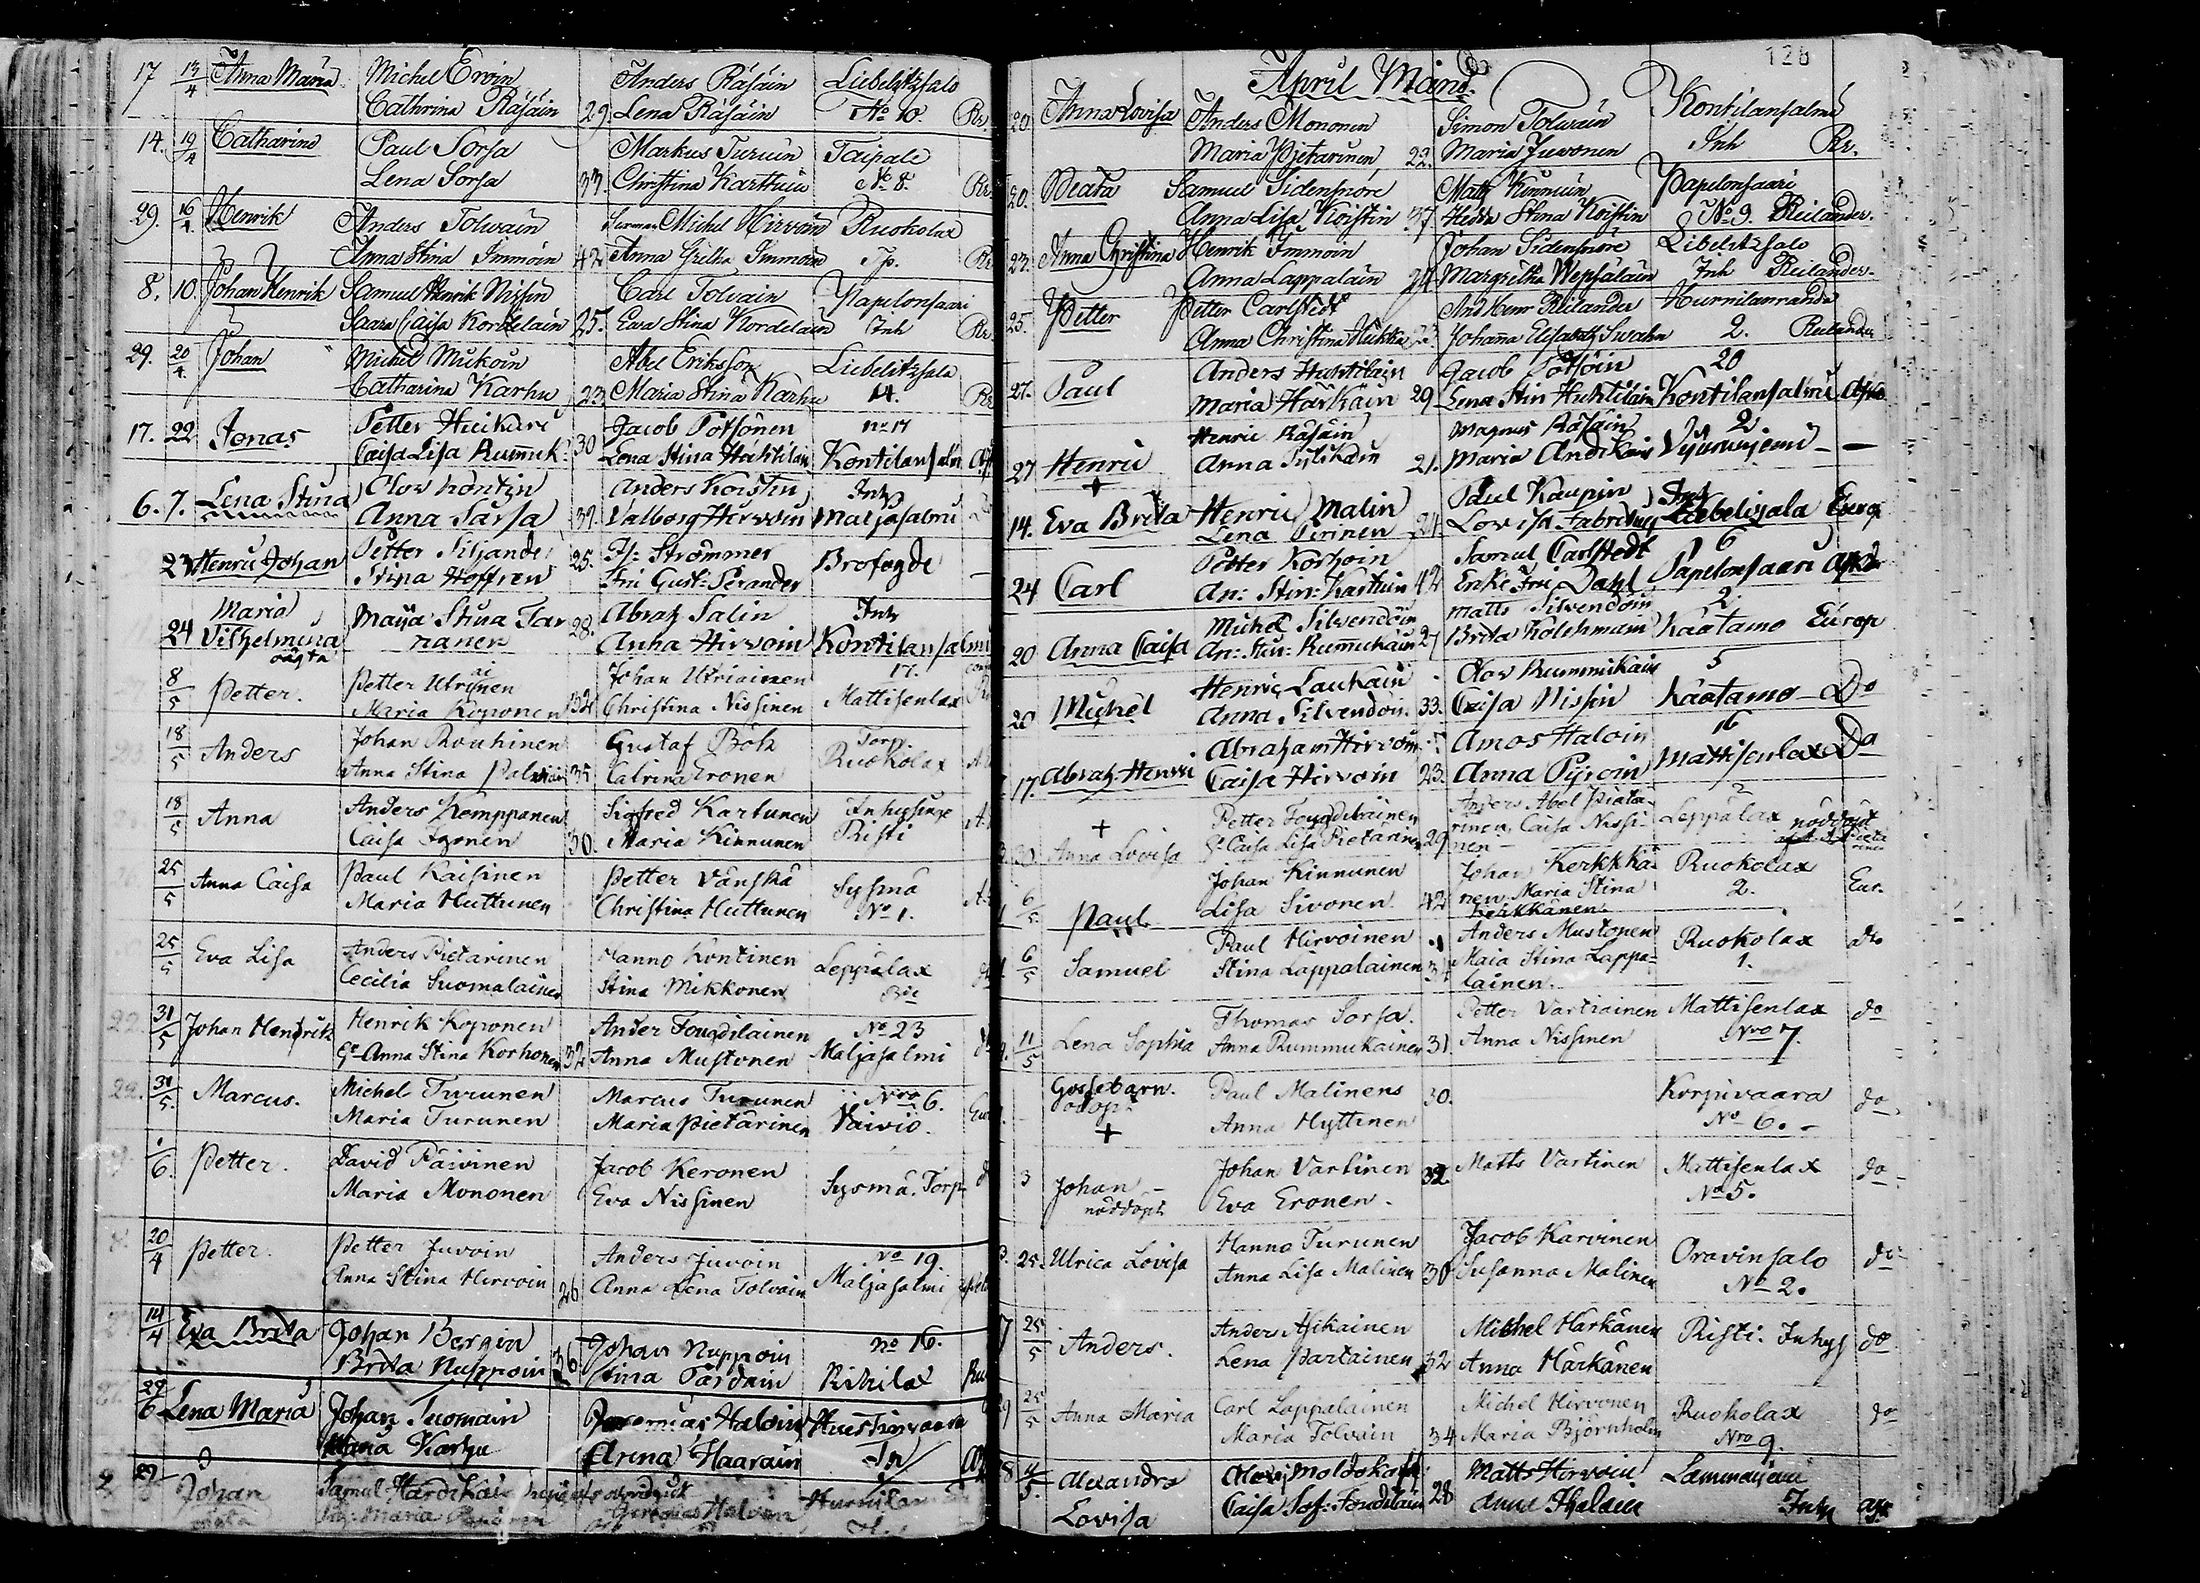 17 13/4 Anna Maria Michel Ervin Anders Räsäin Liebelitzsalo
Cathrina Räsäin 29 Lena Räsäin No 10. Rr
14. 19/4 Catharina Paul Sorsa Markus Turuin Taipale
Lena Sorsa 33 Christina Karttuin No 8. Rr
29. 16/4 Henrik Anders Tolwain Michel Hirvoin Ruokolax
Anna Stina Immoin 42 Anna Gretha Immoin Tp. Rr
8. 10. Johan Henrik Samuel Henrik Nissin Carl Tolvain Papelonsaari
Saara Caisa Kordelain 25. Eva Stina Kordelain Inh Rr
29. 20/4 Johan Michel Mukoin Abel Eriksson Liebelitzsala
Catharina Karhu 23 Maria Stina Karhu 14. Rr
17. 22 Jonas Petter Huikari Jacob Potsonen no 17
Caisa Lisa Rummuk: 30 Lena Stina Huhtilain Kontilansalmi
6. 7. Lena Stina Olov Kontin Anders Koistin Inh
Anna Sarsa 37. Valborg Hirvoin Maljasalmi
23 Henric Johan Petter Siljander 25. Strömmer Brofogde
Stina Hoffren Fru Gust: Perander
Maria Maija Stina Tar Abrah Salin Inh
24 Vilhelmina nanen 28. Anna Hirvoin Kontilansalmi
oägta
8/5 Petter. Petter Utriainen Johan Utriainen 17.
Maria Koponen 32 Christina Nissinen Mattisenlax
18/5 Anders Johan Rouhinen Gustaf Böök Torp.
Anna Stina 35 Catrina Eronen Ruokolax
18/5 Anna Anders Kemppanen Sigfred Kartunen Inhysinge
Caisa Igonen 30. Maria Kinnunen Risti
25/5 Anna Caisa Paul Kaisinen Petter Vänskä Sysmä
Maria Huttunen Christina Huttunen No 1.
25/5 Eva Lisa Anders Pietarinen Hanno Kontinen Leppälax
Cecilia Suomalainen Stina Mikkonen
22. 31/5 Johan Hendrik Henrik Koponen Ander Fougdilainen No 23
Anna Stina Korhonen 32 Anna Mustonen Maljasalmi
22. 31/5. Marcus. Michel Turunen Marcus Turunen Nro 6. Eur
Maria Turunen Maria Pietarinen Vaivio.
6. Petter. David Päivinen Jacob Keronen Sysmä. Torp
Maria Mononen Eva Nissinen
20/4 Petter. Petter Juvoin Anders Juvoin No 19.
Anna Stina Hirvoin 26 Anna Lena Tolvain Maljasalmi
14/4 Eva Brita Johan Bergin Johan Nuppoin No 16.
Brita Nuppoin 36 Stina Pardain Rikilax
29/6 Lena Maria Johan Tuomain Jeremias Haloin
Maria Karhu Anna Haarain In
29 Johan Samul Hardikain Jeremias Halvin
128
April Månd.
20. Anna Lovisa Anders Mononen Simon Tolwain Kontilansalmi
Maria Pietarinen 22. Maria Juvonen Inh Rr.
20. Beata Samuel Sidensnöre Matts Kinnuin Papelonsaari
Anna Lisa Koistin 37 Hedda Stina Koistin No 9. Reilander.
23. Anna Christina Henrik Immoin Johan Sidensnöre Libelitzsalo
Anna Lappalain 24 Margretha Wepsäläin Inh Reilander.
25. Petter Petter Carlstedt And Henr Reilander Hurnilanranda
Anna Christina Hukka 23. Johanna Elisabeth Swahn 2. Reilander
27. Paul Anders Huhtilain Jacob Potsoin 20
Maria Härkäin 29 Lena Stin Huhtilain Kontilansalmi
27 Henric Henric Räsäin Magnus Räsäin 2
Anna 21. Maria Andikain Viinimiemi —
+
14. Eva Brita Henric Malin Paul Kaupin Inh
Lena Pirinen 24. Lowisa Fabritius Liebelizala Europ
24 Carl Petter Korhoin Samul Carlstedt 6
An: Stin: Karttuin 42 Enke Fru Dahl Papelonsaari
20 Anna Caisa Michel Silvendoin Matts Silvendoin 2.
An: Stin: Rummukain 27 Brita Kolehmain Kaatamo Europ
20 Michel Henric Laukain Olov Rummukain 5
Anna Silvendoin. 33. Caisa Nissin Kaatamo Do
17. Abrah: Henric Abraham Hirvoin Amos Haloin 16
Caisa Hirvoin 23. Anna Pyroin Mattisenlax Do
+ Petter Fougdilainen Anders Abel Pieta- 2
30 Anna Lovisa Caisa Lisa Pietarinen 29 rinen, Caisa Nissi- Leppälax nöddöpt
nen
6/5 Paul Johan Kinnunen Johan Kerkkä- Ruokolax
Lisa Sivonen 42 nen Maria Stina 2. Eur.
Kerkkänen.
6/5 Samuel Paul Hirvoinen Anders Mustonen Ruokolax do
Stina Lappalainen 31 Maia Stina Lappa- 1.
lainen.
11/5 Lena Sophia Thomas Sorsa. Petter Vartiainen Mattisenlax do
Anna Rummukainen 31 Anna Nissinen Nro 7.
Gossebarn. Paul Malinens 30. Korpivaara do
odöpt Anna Hyttinen No 6.
+
3 Johan Johan Vartinen 32. Matts Vartinen Mattisenlax do
nöddöpt. Eva Eronen No 5.
25. Ulrica Lovisa Hanno Turunen Jacob Karvinen Oravinsalo do
Anna Lisa Malinen 30 Susanna Malinen No 2.
25/5 Anders. Anders Asikainen Michel Harkänen Risti. Inhys do
Lena Partainen 32 Anna Härkänen
25/5 Anna Maria Carl Lappalainen Michel Hirvonen Ruokolax do
Maria Tolvain 34 Maria Björnholm Nro 9.
Alexandra Matts Hirvoin
Lovisa Caisa Sof: Foudilain 28 Inhy